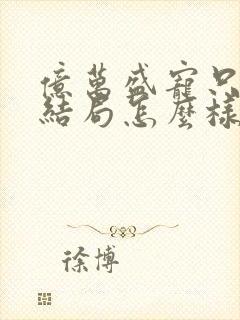 億萬盛寵只
結局怎麼樣
徐博